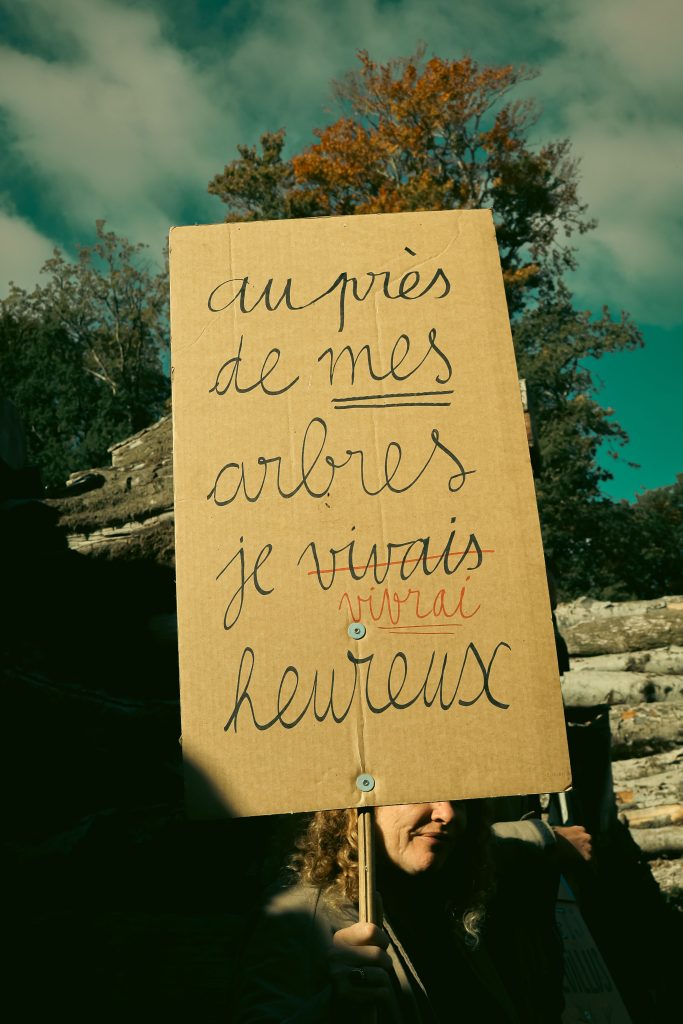 auprès
de mes
arbres
je vivais
vivrai
heureux